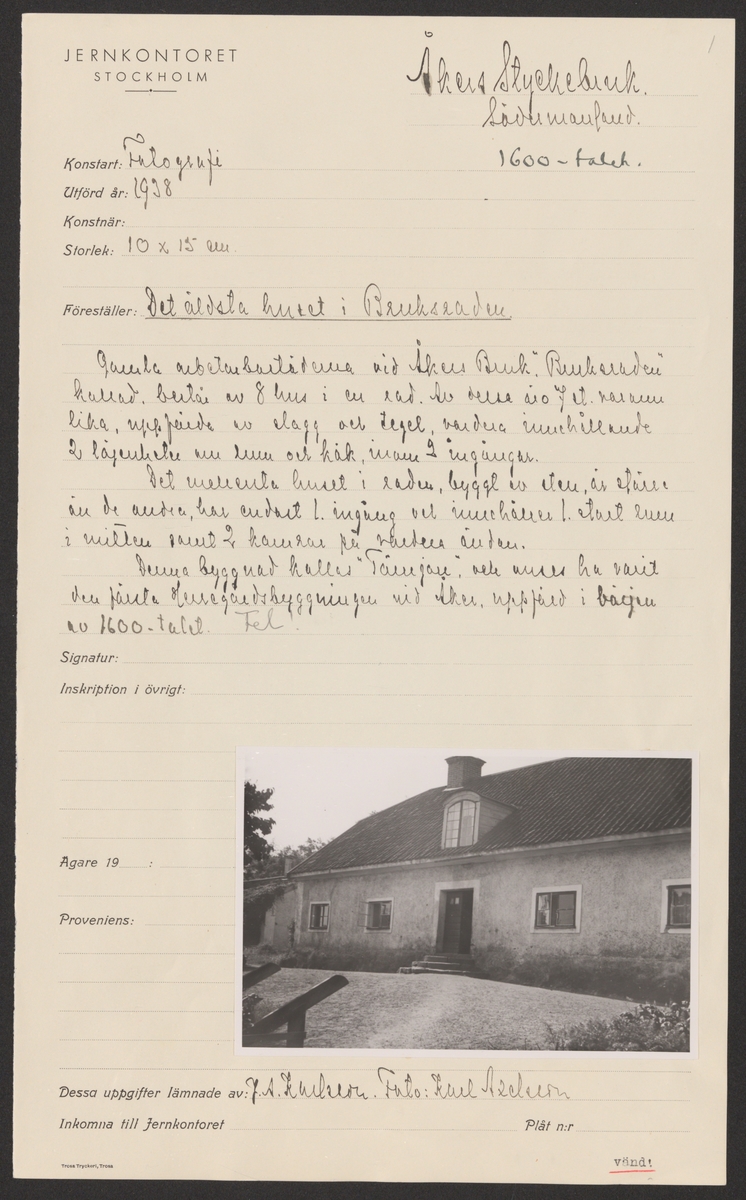 1
JERNKONTORET
STOCKHOLM
Åkers Styckebruk.
Södermanland.
1600-talet.
Konstart: Fotografi
Utförd år: 1938
Konstnär:
Storlek: 10 x 15 cm.
Föreställer: Det äldsta huset i Bruksraden.
Gamla arbetarbostäderna vid Åkers Bruk, "Bruksraden"
kallad, består av 8 hus i en rad. Av dessa äro 7 st. varann
lika, uppförda av slagg och tegel, vardera innehållande
2 lägenheter om rum och kök, inom 2 ingångar.
Det nedersta huset i raden, byggt av sten, är större
än de andra, har endast 1. ingång och innehåller 1. stort rum
i mitten samt 2 kamrar på vardera ändan.
Denna byggnad kallas "Tämjan", och anses ha varit
den första Herregårdsbyggningen vid Åker, uppförd i början
av 1600-talet. Fel!
Signatur:
Inskription i övrigt:
Ägare 19 :
Proveniens:
Dessa uppgifter lämnade av: J. A. Karlsson. Foto: Karl Axelsson
Inkomna till Jernkontoret Plåt n:r
Trosa Tryckeri, Trosa
vänd!